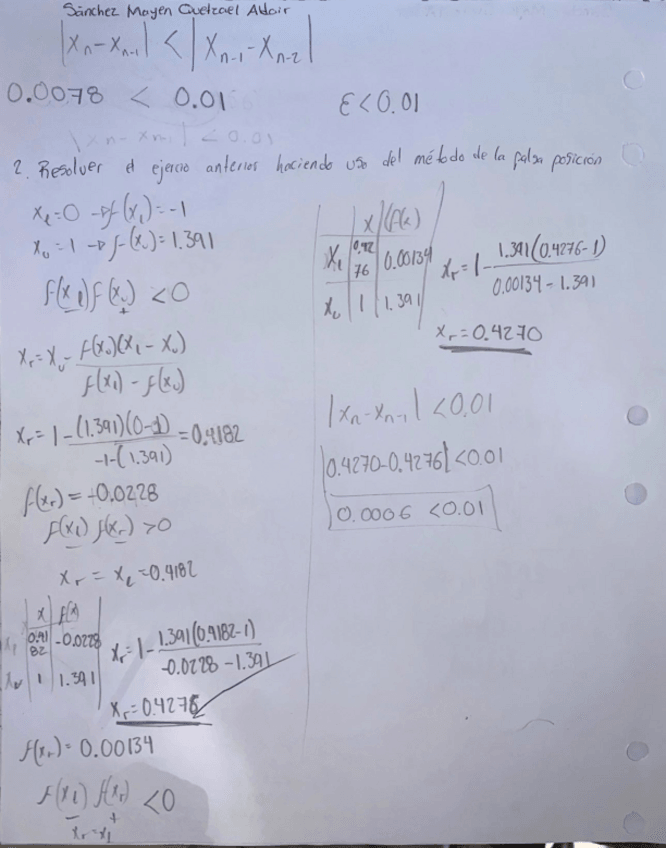 Sánchez Mayen Quetzael Aldair
|xₙ-xₙ₋₁| < |xₙ₋₁-xₙ₋₂|
0.0078 < 0.01 ε<0.01
|xn- xn-1| < 0.01
2. Resolver el ejercio anterios haciendo uso del método de la falsa posición
xₗ=0 → f(xₗ)=-1
xᵤ=1 → f(xᵤ)=1.391
f(xₗ)f(xᵤ) <0
- +
xᵣ=xᵤ- f(xᵤ)(xₗ-xᵤ)
f(xₗ)-f(xᵤ)
xᵣ= 1-(1.391)(0-1) =0.4182
-1-(1.391)
f(xᵣ)= -0.0228
f(xₗ) f(xᵣ) >0
xᵣ = xₗ=0.4182
x f(x)
xₗ 0.4182 -0.0228
xᵤ 1 1.391
xᵣ=1- 1.391(0.4182-1)
-0.0228-1.391
xᵣ=0.4276
f(xᵣ)= 0.00134
f(xₗ) f(xᵣ) <0
- +
xᵣ=xₗ
x f(x)
xₗ 0.4276 0.00134
xᵤ 1 1.391
xᵣ=1- 1.391(0.4276-1)
0.00134-1.391
xᵣ=0.4270
|xₙ-xₙ₋₁| <0.01
|0.4270-0.4276| <0.01
0.0006 <0.01